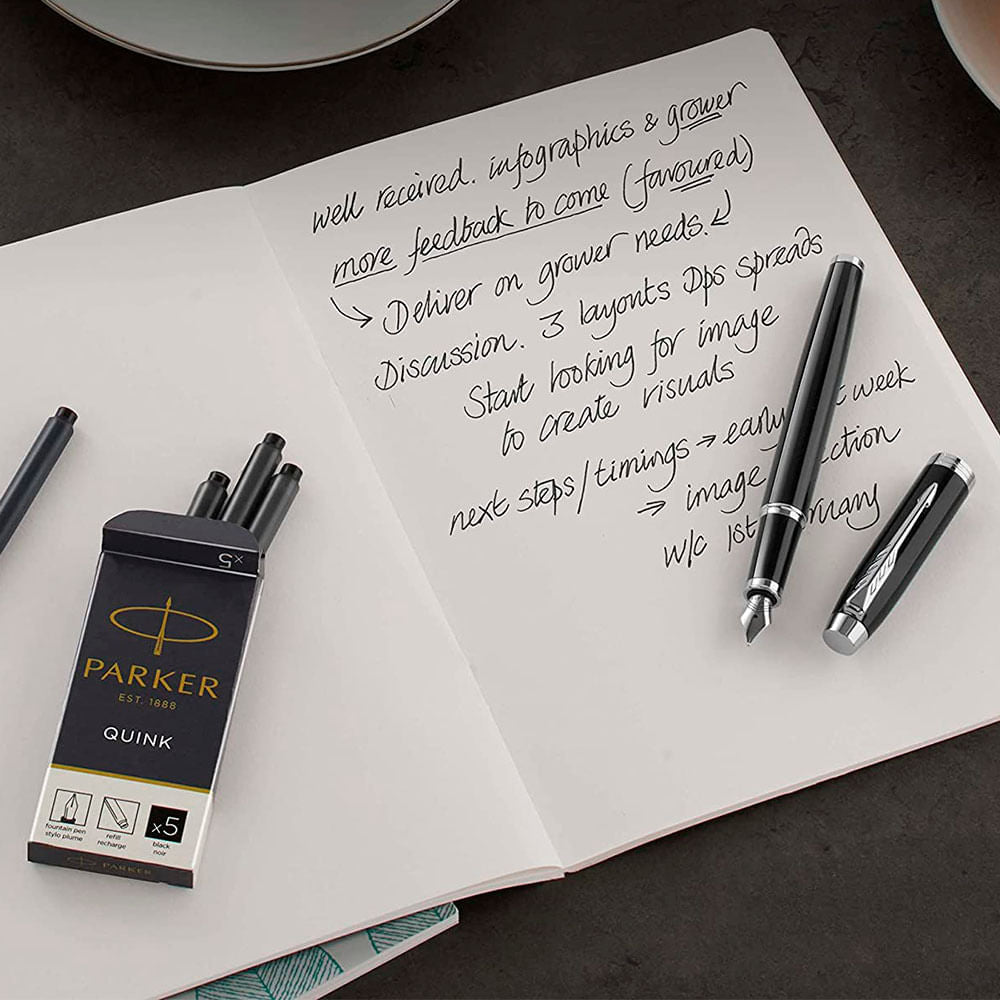 well received. infographics & grower
more feedback to come (favoured)
Deliver on grower needs.
Discussion. 3 layouts Dps spreads
Start looking for image
to create visuals
next steps/timings → early week
⇒ image
w/c 1st
x5
PARKER
EST. 1888
QUINK
fountain pen
stylo plume
refill
recharge
x5
black
noir
PARKER